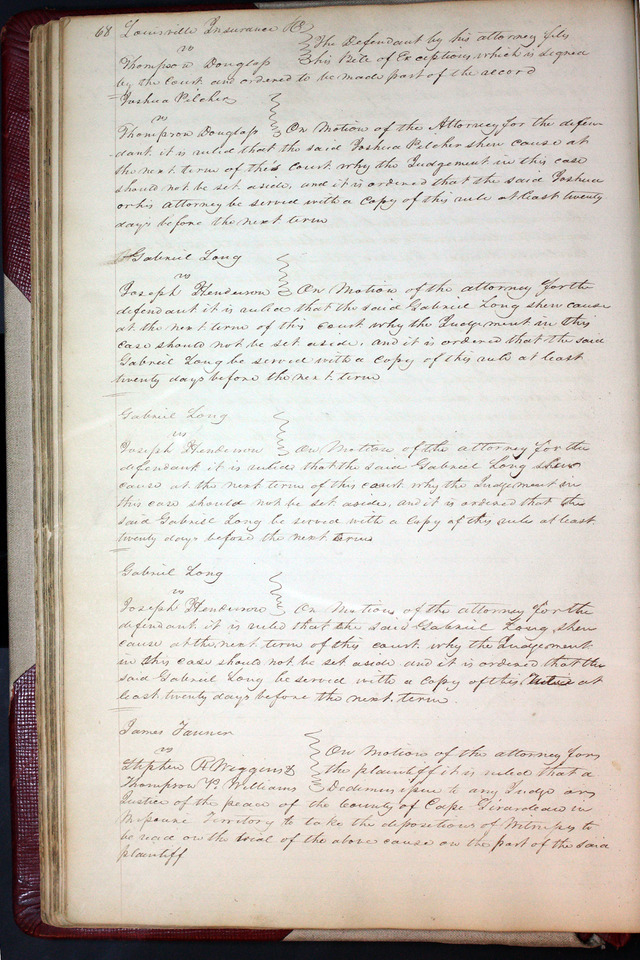 68 Louisville Insurance Co
vs
The Defendant by his attorney files
Thompson Douglass his Bill of Exceptions which is signed
by the Court and ordered to be made part of the record
Joshua Pilcher
vs
Thompson Douglass On Motion of the Attorney for the defen-
dant it is ruled that the said Joshua Pilcher shew cause at
the next term of this court why the Judgement in this case
should not be set aside, and it is ordered that the said Joshua
or his attorney be served with a copy of this rule at least twenty
days before the next term
Gabriel Long
vs
Joseph Henderson On Motion of the attorney for the
defendant it is ruled that the said Gabriel Long shew cause
at the next term of this court why the Judgement in this
case should not be set aside, and it is ordered that the said
Gabriel Long be served with a copy of this rule at least
twenty days before the next term
Gabriel Long
vs
Joseph Henderson On Motion of the attorney for the
defendant it is ruled that the said Gabriel Long shew
cause at the next term of this court why the Judgement in
this case should not be set aside, and it is ordered that the
said Gabriel Long be served with a copy of this rule at least
twenty days before the next term
Gabriel Long
vs
Joseph Henderson On Motion of the attorney for the
defendant it is ruled that the said Gabriel Long shew
cause at the next term of this court why the Judgement
in this case should not be set aside and it is ordered that the
said Gabriel Long be served with a copy of this at
least twenty days before the next term.
James Tanner
vs
On Motion of the attorney for
Stephen R. Wiggins & the plaintiff it is ruled that a
Thompson P. Williams Dedimus issue to any Judge or
Justice of the peace of the County of Cape Girardeau in
Missouri Territory to take the depositions of Witnesses to
be read on the trial of the above cause on the part of the said
plaintiff